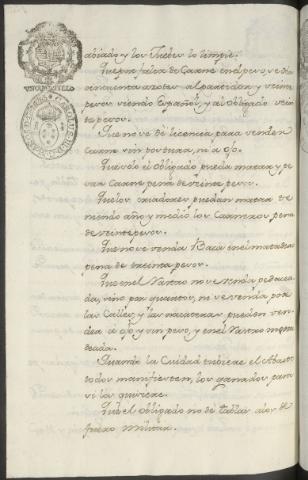 UN QUARTILLO
abiado y los Jueves lo limpie.
Que por falta de Carne en el peso, se dén
cincuenta azotes al partidor, y veinte
pesos siendo Español, y al Obligado vein
te pesos.
Que no se dé licencia para vender
carne sin postura, ni a ojo.
Que solo el Obligado pueda matar y pe
sar Carne pena de veinte pesos.
Que los criadores puedan matar te
niendo año y medio los Carneros pena
de veinte pesos.
Que no se venda Baca en el matadero
pena de treinta pesos.
Que en el Rastro no se venda pedacea
da, sino por quartos, ni se venda por
las Calles, y las nacateras puedan ven
der a ojo y sin peso, y en el Rastro
Quando la Ciudad tubiere el Abasto
todos manifiesten los ganados para
si los quisiere.
Que el Obligado no dé tablas a los de
fuero militar.